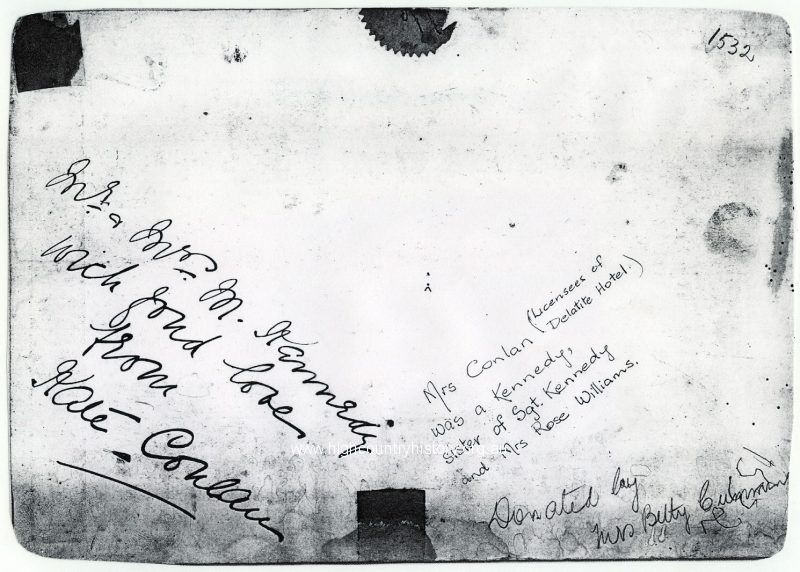 1532
Mr. & Mrs. M. Kennedy
with fond love
from
Kate Conlan
Mrs Conlan (Licensees of
Delatite Hotel.)
was a Kennedy,
sister of Sgt. Kennedy
and Mrs Rose Williams.
Donated by
Mrs Betty